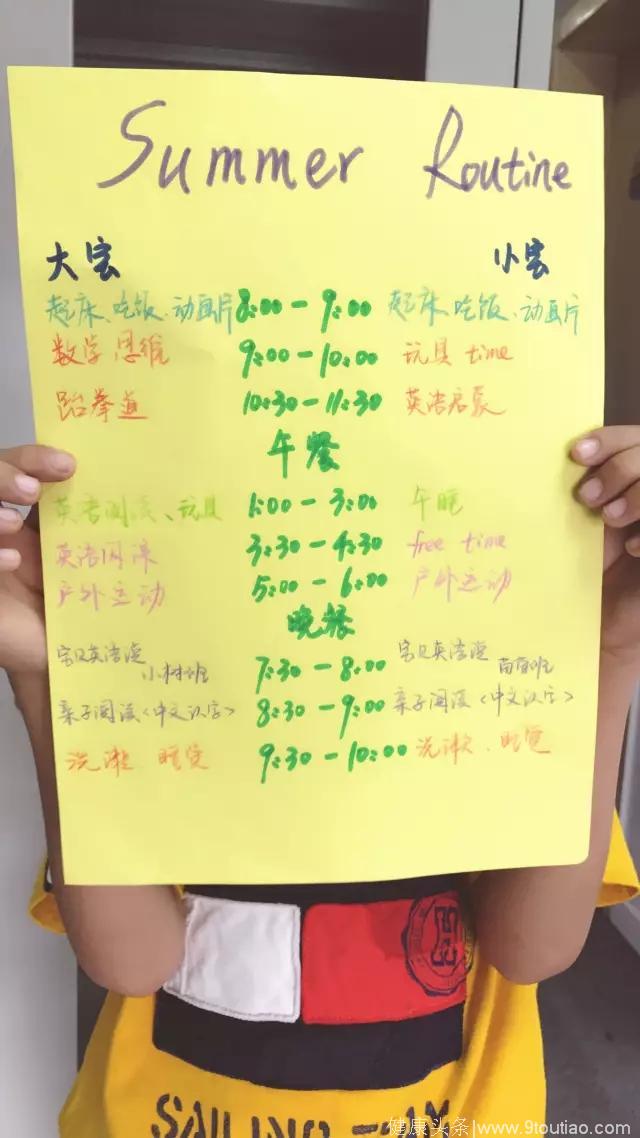 Summer Routine
大宝 小宝
起床、吃饭、动画片 8:00-9:00 起床、吃饭、动画片
数学思维 9:00-10:00 玩具 time
跆拳道 10:30-11:30 英语启蒙
午餐
英语阅读、玩具 1:00-3:00 午睡
英语网课 3:30-4:30 free time
户外运动 5:00-6:00 户外运动
晚餐
宝贝英语课 小树班 7:30-8:00 宝贝英语课 苗苗班
亲子阅读<中文识字> 8:30-9:00 亲子阅读<中文识字>
洗漱 睡觉 9:30-10:00 洗漱、睡觉
SAILING
健康头条|www.9toutiao.com